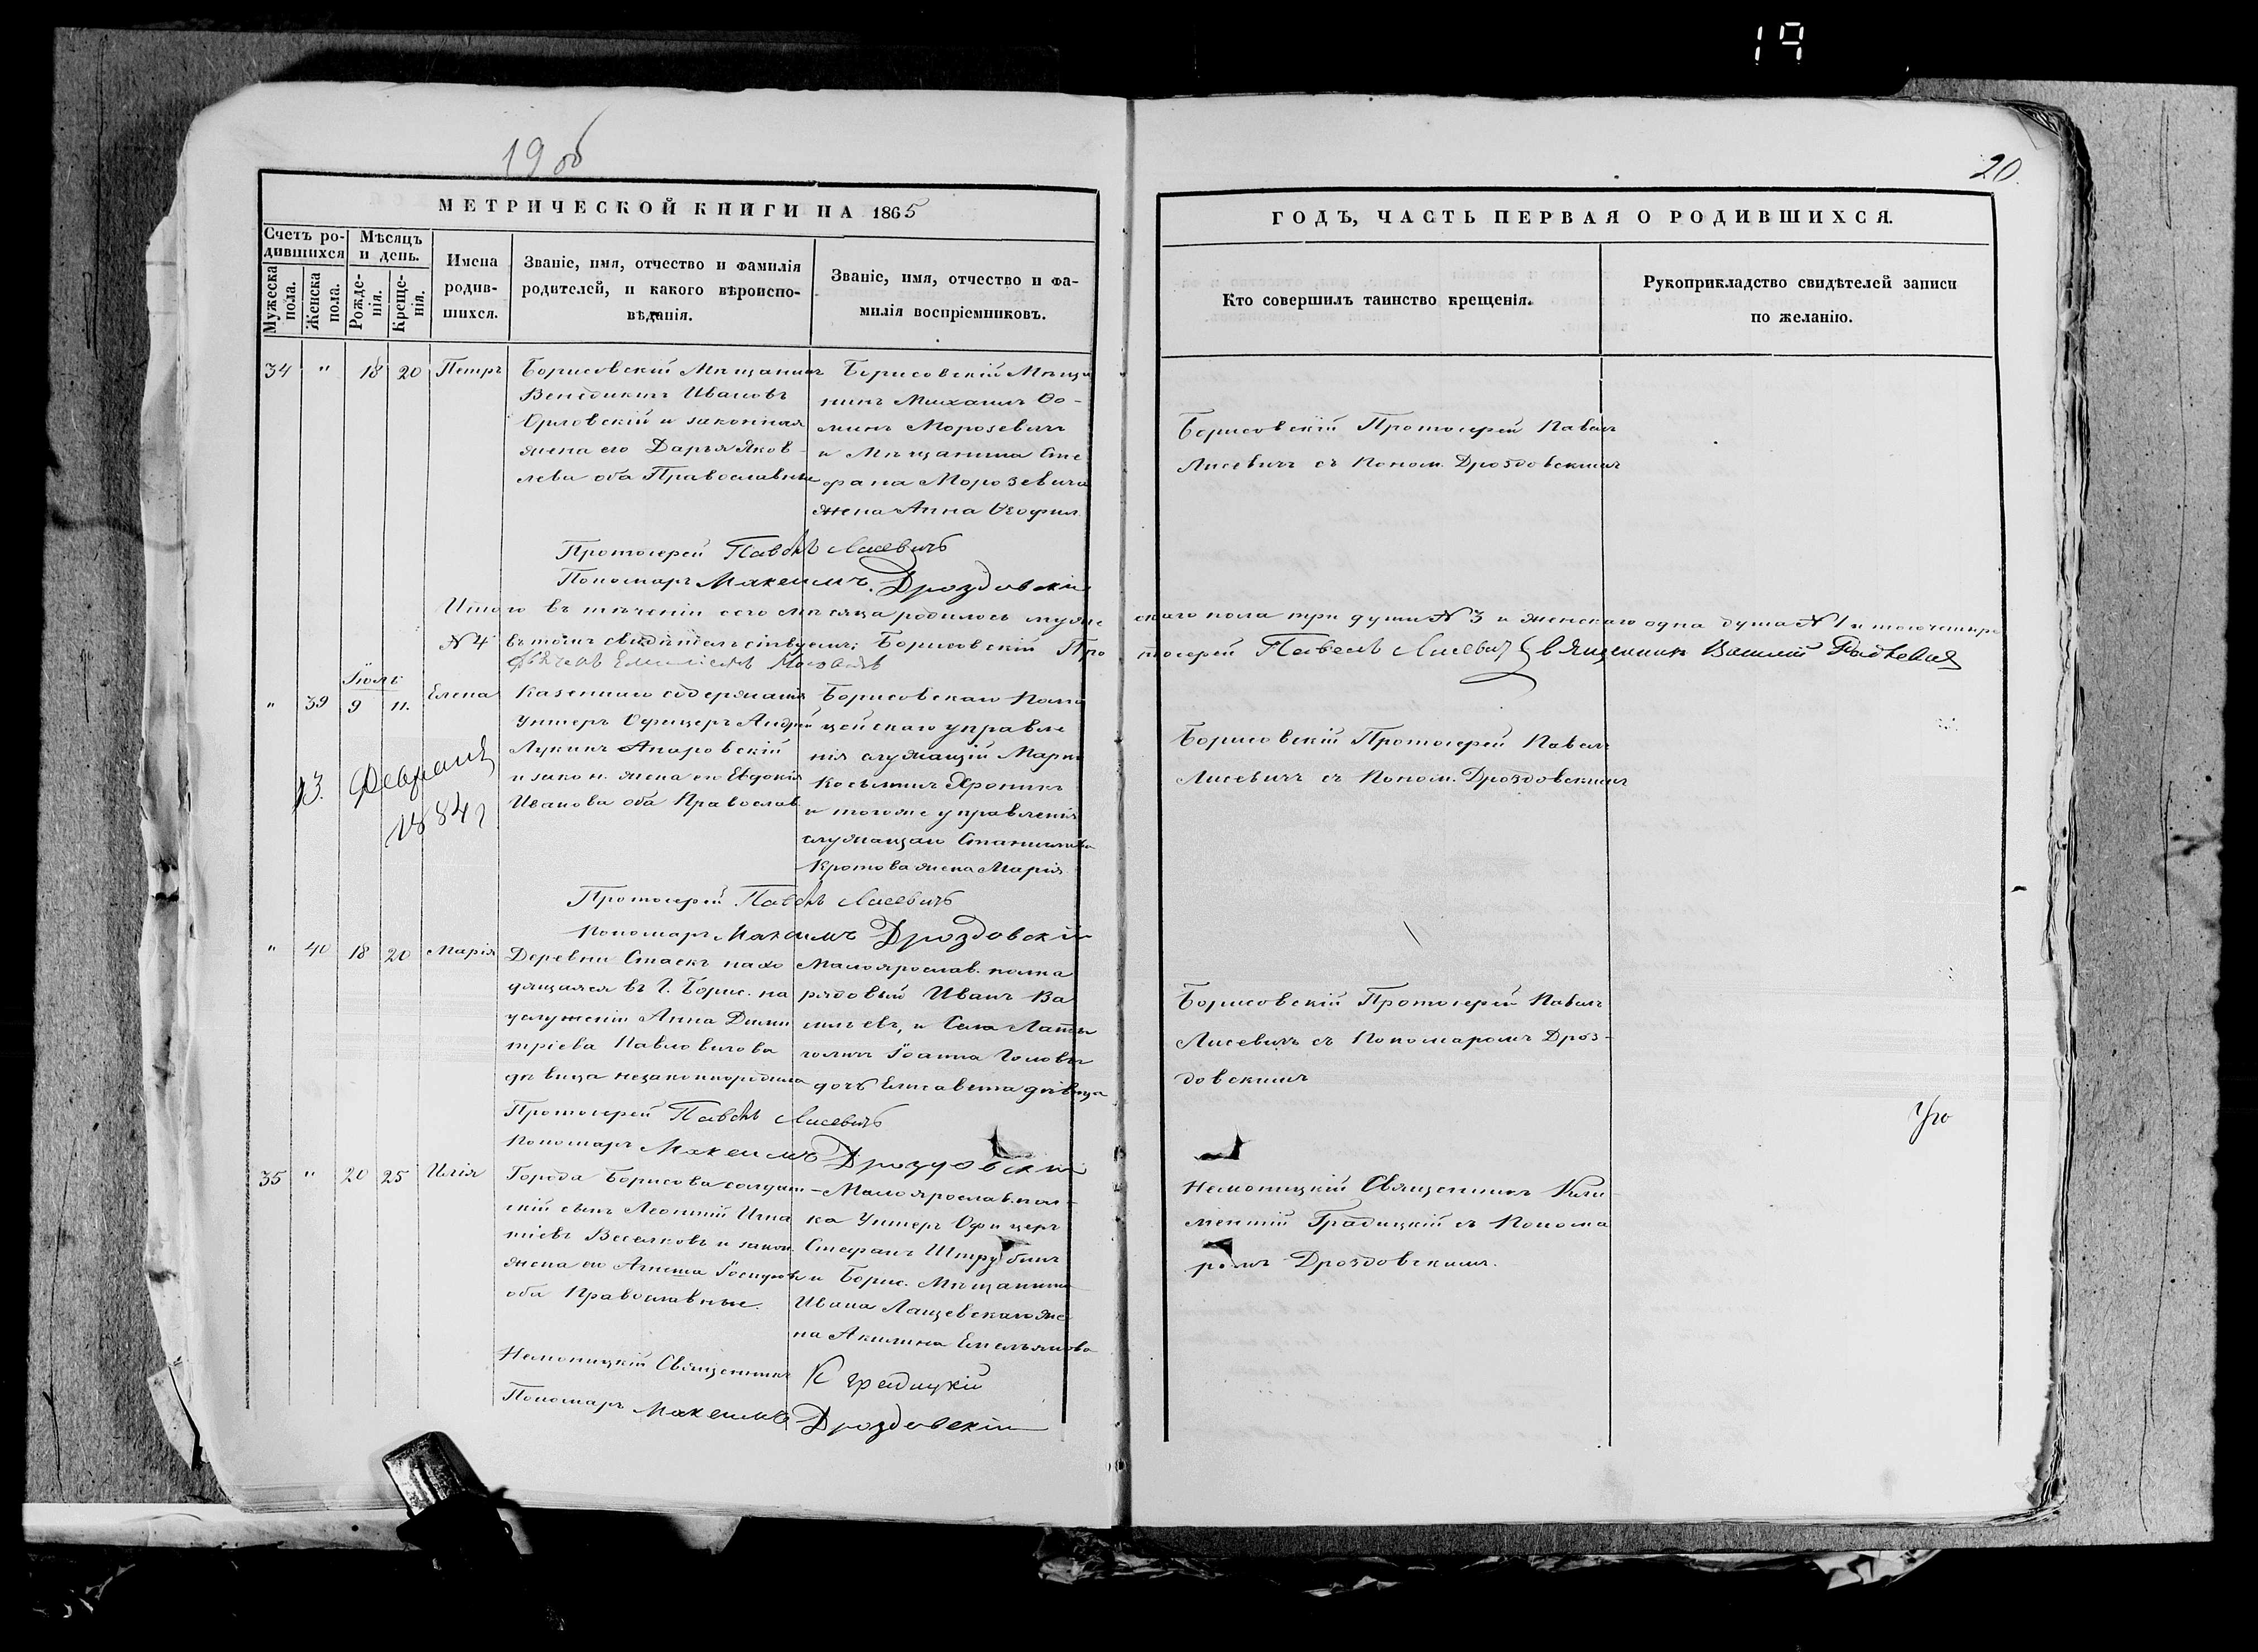 19
19 об
20.
МЕТРИЧЕСКОЙ КНИГИ НА 1865
ГОДЪ, ЧАСТЬ ПЕРВАЯ О РОДИВШИХСЯ.
Счетъ ро-
дившихся
Мѣсяцъ
и день.
Мужеска
пола.
Женска
пола.
Рожде-
нія.
Креще-
нія.
Имена
родив-
шихся.
Званіе, имя, отчество и фамилія
родителей, и какого вѣроиспо-
вѣданія.
Званіе, имя, отчество и фа-
милія воспріемниковъ.
Кто совершилъ таинство крещенія.
Рукоприкладство свидѣтелей записи
по желанію.
34 " 18 20 Петръ
Борисовскій Мѣщанинъ
Венедиктъ Ивановъ
Орловскій и законная
жена его Дарья Яков-
лева оба Православные
Борисовскій Мѣща
нинъ Михаилъ Ѳо-
минъ Морозевичъ
и Мѣщанина Сте
фана Морозевича
жена Анна Ѳеофил.
Борисовскій Протоіерей Павелъ
Лисевичъ съ Поном. Дроздовскимъ
Протоіерей Павелъ Лисевичъ
Пономарь Максимъ Дроздовскій
Итого въ теченіи сего мѣсяца родилось муже
скаго пола три души № 3 и женскаго одна душа № 1 и того четыре
№ 4 въ томъ свидѣтельствуемъ: Борисовскій Про
тоіерей Павелъ Лисевичъ Священникъ Василій
Іюль
" 39 9 11. Елена
13. Февраля
1884 г
Казеннаго содержанія
Унтеръ Офицеръ Андрей
Лукинъ
и закон. жена его Евдокія
Иванова оба Православ.
Борисовскаго Поли
цейскаго управле
нія служащій Марк
Косьминъ Хроникъ
и тогоже управленія
служащаго Станислава
Кротова жена Марія
Борисовскій Протоіерей Павелъ
Лисевичъ съ Поном. Дроздовскимъ
Протоіерей Павелъ Лисевичъ
Пономарь Максимъ Дроздовскій
" 40 18 20 Марія
Деревни Стаекъ нахо
дящаяся въ Г. Борис. на
услуженіи Анна Дими
тріева Павловичова
дѣвица незаконнорожден
Малоярослав. полка
рядовый Иванъ Ва
сильевъ, и Села
Іоанна
дочь Елисавета дѣвица
Борисовскій Протоіерей Павелъ
Лисевичъ съ Пономаромъ Дроз-
довскимъ
Протоіерей Павелъ Лисевичъ
Пономарь Максимъ Дроздовскій
35 " 20 25 Илія
Города Борисова солдат-
скій сынъ Леонтій Игна
тіевъ Веселковъ и закон.
жена его Агнета Іосифова
оба Православные.
Малоярослав. пол-
ка Унтеръ Офицеръ
Стефанъ Штрубинъ
и Борис. Мѣщанина
Ивана Лащевскаго же
на Акилина Емельянова
Немоницкій Священникъ Кли
ментій Градицкій съ Понома
ромъ Дроздовскимъ.
Немоницкій Священникъ К Градицкій
Пономарь Максимъ Дроздовскій